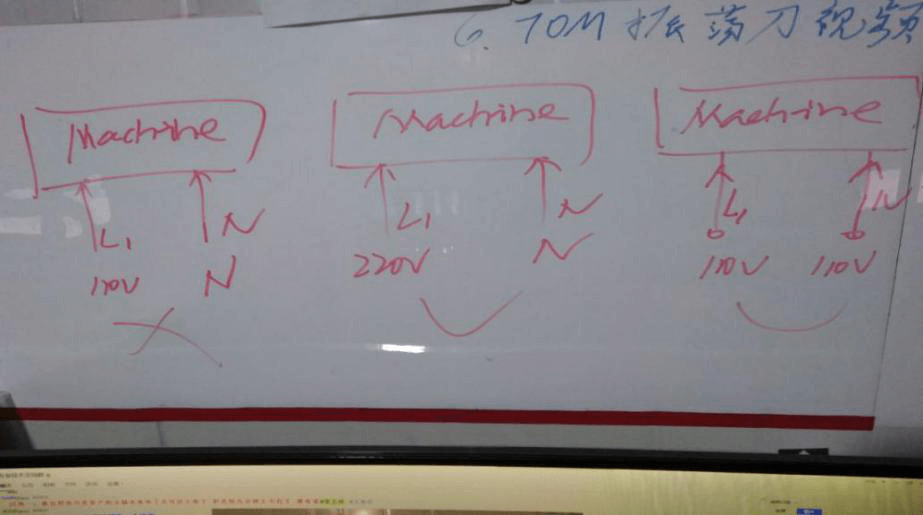 6. TOM 振荡刀视频
Machine Machine Machine
L1 N L1 N L1 N
110V N 220V N 110V 110V